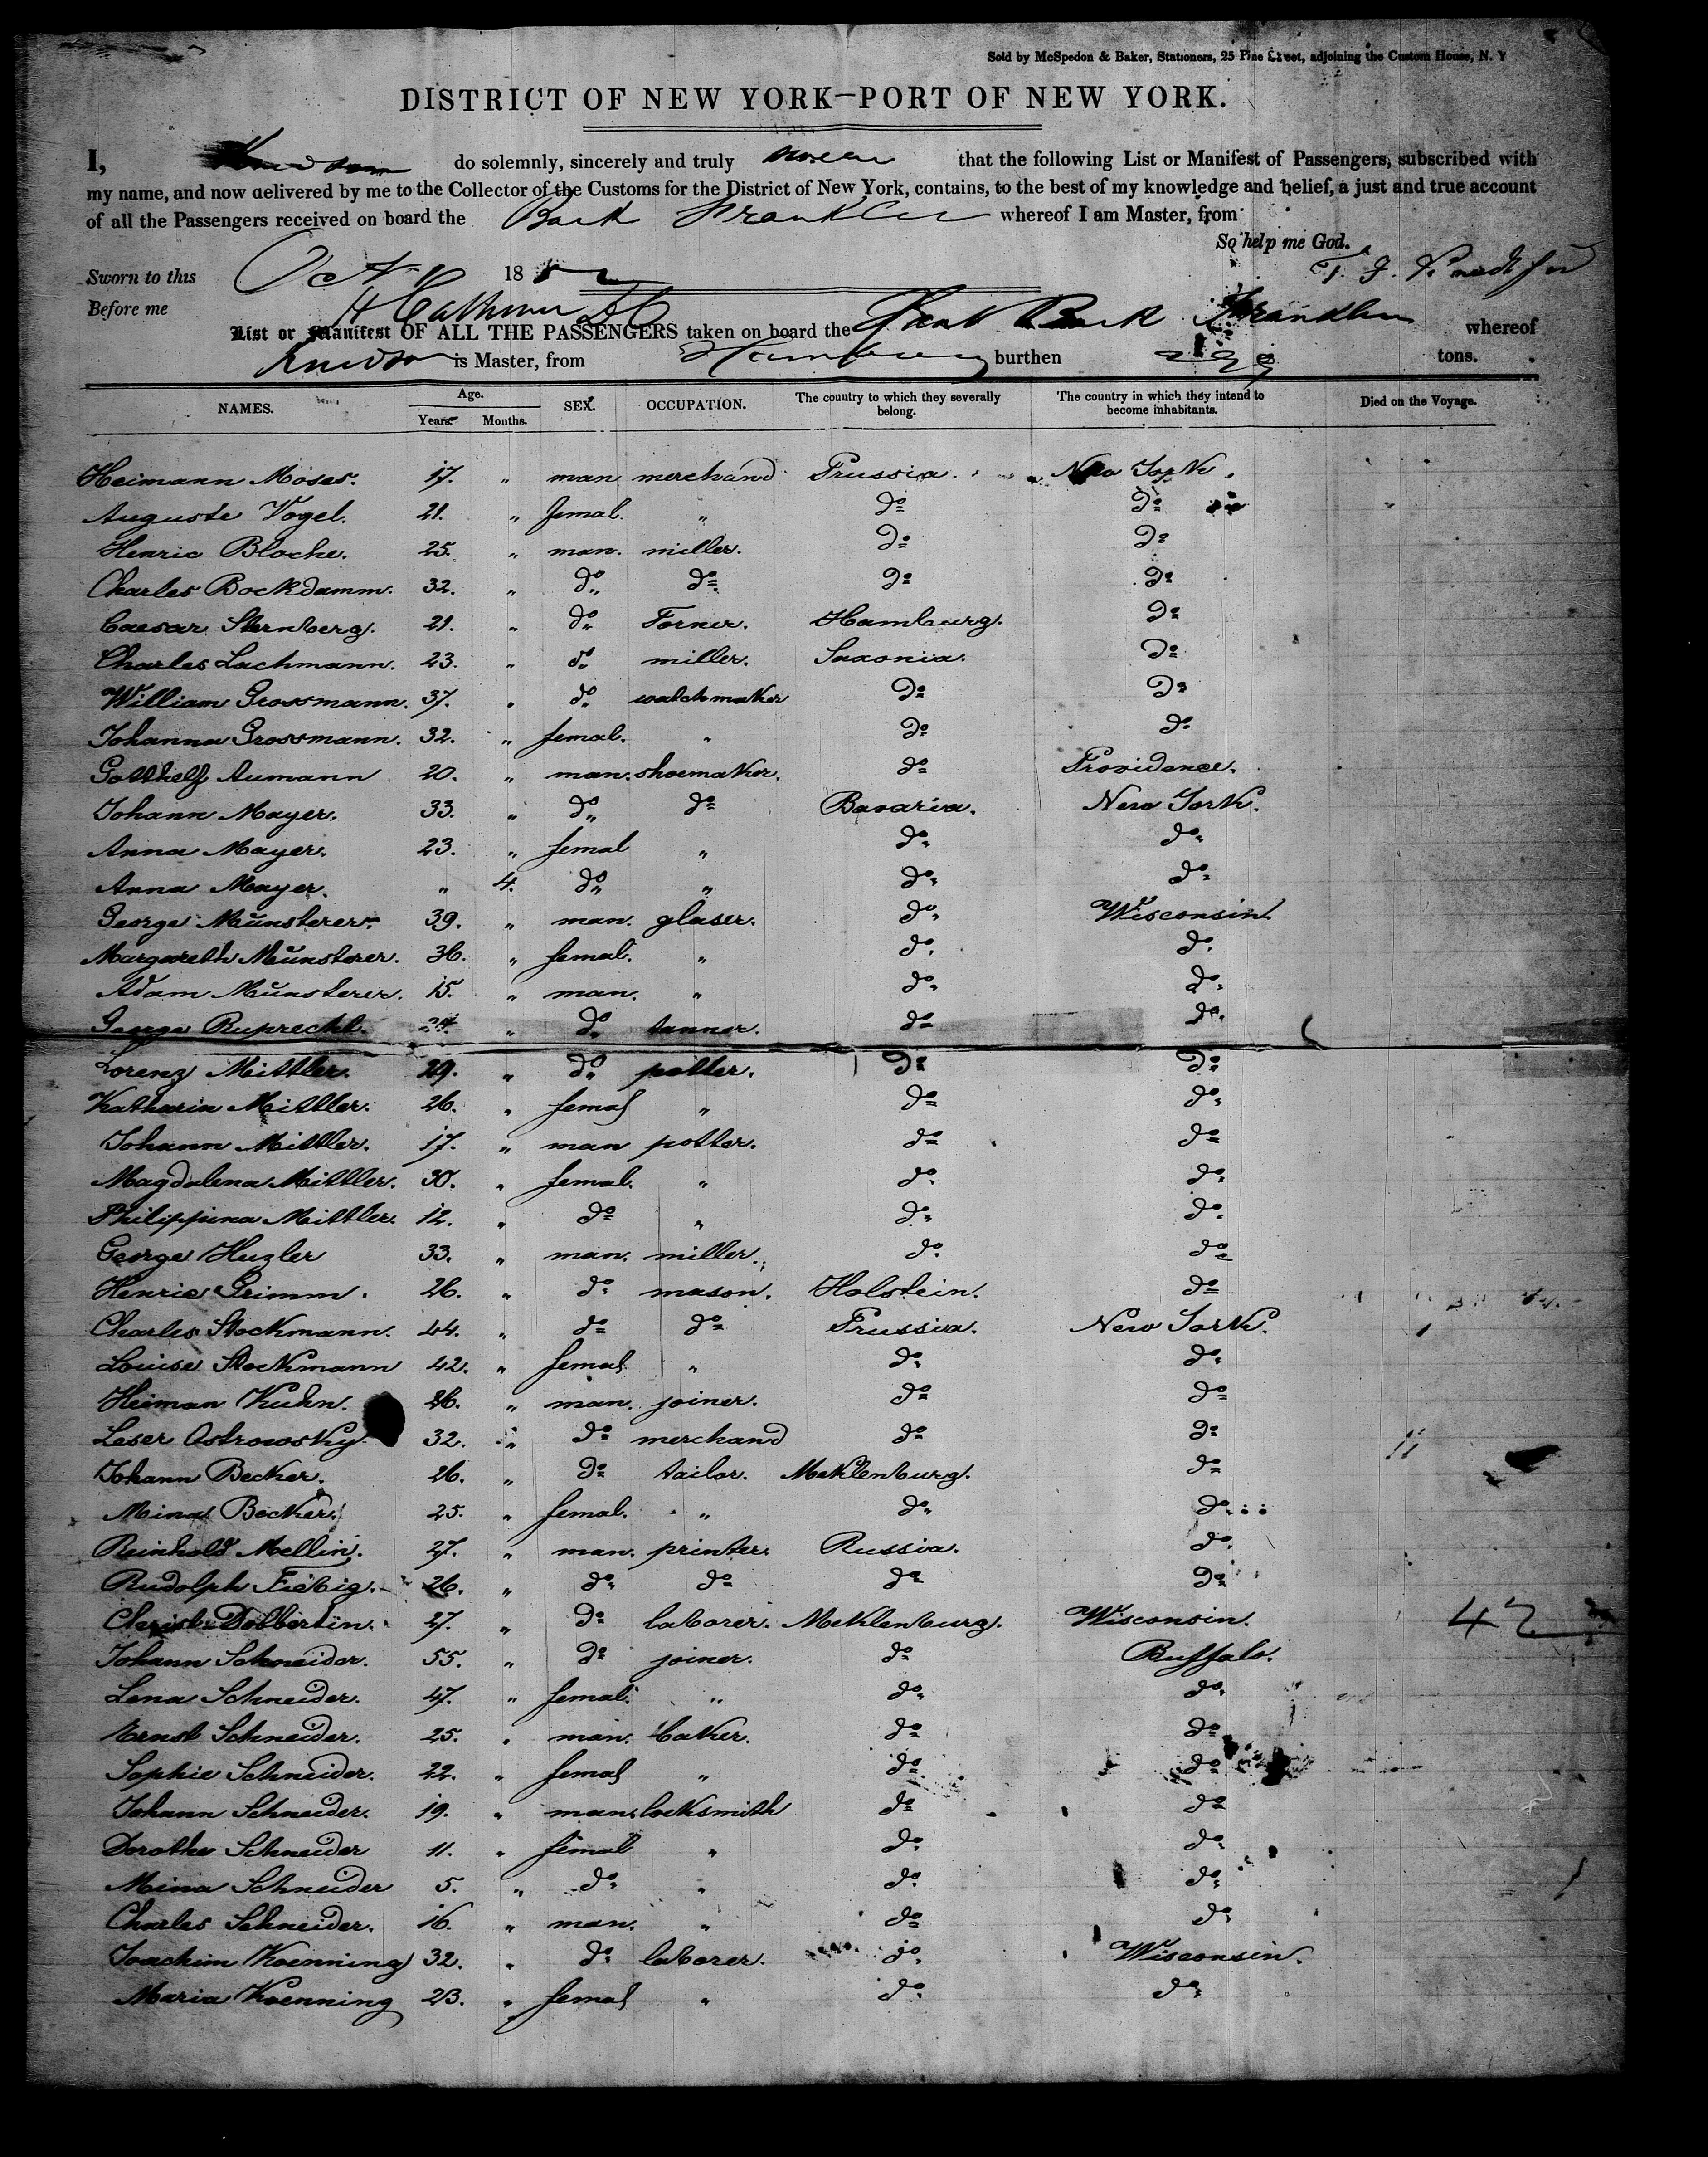 Sold by McSpedon & Baker, Stationers, 25 Pine Street, adjoining the Custom House, N. Y
DISTRICT OF NEW YORK—PORT OF NEW YORK.
I, do solemnly, sincerely and truly swear that the following List or Manifest of Passengers, subscribed with
my name, and now delivered by me to the Collector of the Customs for the District of New York, contains, to the best of my knowledge and belief, a just and true account
of all the Passengers received on board the Bark Franklin whereof I am Master, from
So help me God.
Sworn to this Oct 1852
Before me
List or Manifest OF ALL THE PASSENGERS taken on board the Bark Franklin whereof
Knudson is Master, from Hamburg burthen tons.
NAMES. Age. Years. Months. SEX. OCCUPATION. The country to which they severally belong. The country in which they intend to become inhabitants. Died on the Voyage.
Heimann Moses. 17. " man merchand Prussia. New York.
Auguste Vogel. 21. " femal. " do do
Henric Bloche. 25. " man. miller. do do
Charles Bockdamm. 32. " do do do do
Caesar Sternberg. 21. " do Forner. Hamburg. do
Charles Lachmann. 23. " do miller. Saxonia. do
William Grossmann. 37. " do watchmaker do do
Johanna Grossmann. 32. " femal. " do do
Gotthelf Aumann 20. " man. shoemaker. do Providence.
Johann Mayer. 33. " do do Bavaria. New York.
Anna Mayer. 23. " femal " do do
Anna Mayer. " 4. do " do do
George Münsterer. 39. " man. glaser. do Wisconsin.
Margareth Münsterer. 36. " femal. " do do
Adam Münsterer. 15. " man. " do do
George Ruprecht. 24. " do tanner. do do
Lorenz Mittler. 29. " do potter. do do
Katharia Mittler. 26. " femal " do do
Johann Mittler. 17. " man potter. do do
Magdalena Mittler. 30. " femal. " do do
Philippina Mittler. 12. " do " do do
George Huzler 33. " man. miller. do do
Henric Grimm. 26. " do mason. Holstein. do
Charles Stockmann. 44. " do do Prussia. New York.
Louise Stockmann 42. " femal " do do
Heiman Kuhn. 26. " man. joiner. do do
Leser Ostrowsky 32. " do merchand do do
Johann Becker. 26. " do tailor. Meklenburg. do
Mina Becker. 25. " femal. " do do
Reinhold Mellin. 27. " man. printer. Russia. do
Rudolph Fiebig. 26. " do do do do
Christ. Dobbertin. 27. " do laborer. Meklenburg. Wisconsin. 42
Johann Schneider. 55. " do joiner. do Buffalo.
Lena Schneider. 47. " femal. " do do
Ernst Schneider. 25. " man. baker. do do
Sophie Schneider. 22. " femal " do do
Johann Schneider. 19. " man. locksmith do do
Dorothe Schneider 11. " femal " do do
Mina Schneider 5. " do " do do
Charles Schneider. 16. " man. " do do
Joachim Koenning 32. " do laborer. do Wisconsin.
Maria Koenning 23. " femal " do do